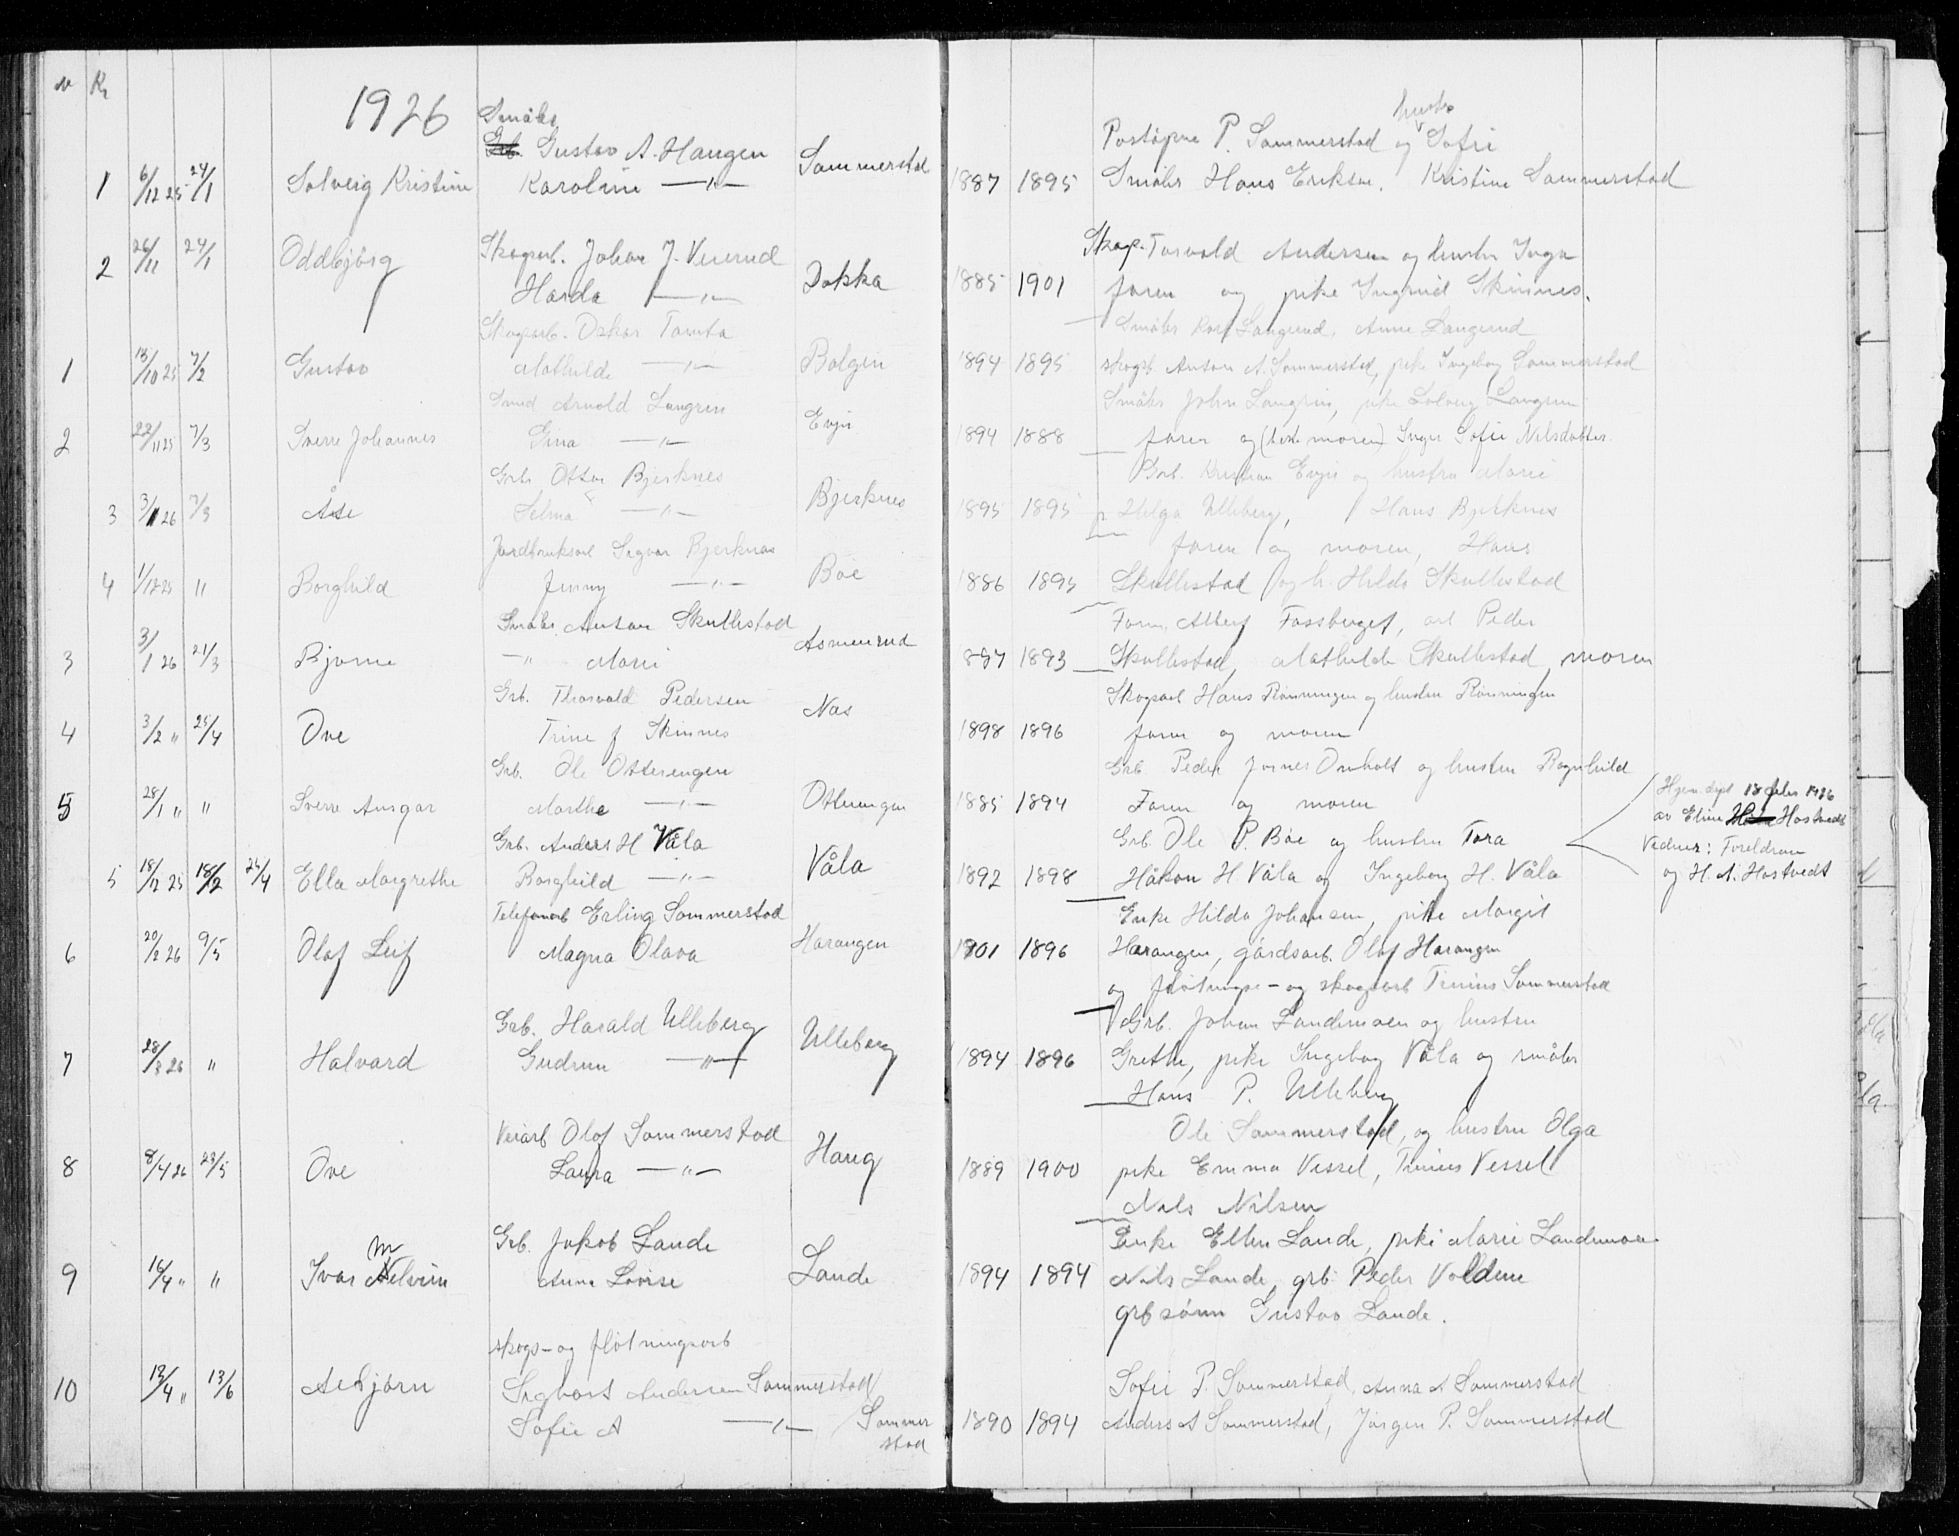 1926
1 6/12 25 24/1 Solveig Kristine Småbr. Gustav A. Haugen Sommerstad 1887 1895 Poståpne P. Sommerstad og hustr Sofie
Karoline —"— Småbr Hans Eriksen. Kristine Sommerstad
2 26/11 24/1 Oddbjörg Skogsarb. Johan J. Veierud Dokka 1885 1901 Skogs. Torvald Andersen og hustr Inga
Harda —"— faren og pike Ingrid Skinnes.
1 13/10 25 7/2 Gustav Skogsarb. Oskar Tomta Bolgen 1894 1895 Småbr Langerud, Anne Langerud
Mathilde —"— skogsb Anton A. Sommerstad, pike Ingeborg Sommerstad
2 22/11 25 7/3 Sverre Johannes Smed Arnold Langren Evju 1894 1888 Småbr John Langren, pike Solveig Langren
Gina —"— faren og moren) Inger Sofie Nilsdatter
3 3/1 26 7/3 Åse Grbr Ottar Bjerknes Bjerknes 1895 1895 Grb. Kristian Evju og hustru Marie
Selma —"— p Helga Ulleberg, Hans Bjerknes
4 1/12 25 " Borghild Jordbruksarb Sigvar Bjerknes Böe 1886 1895 faren og moren, Hans
Jenny —"— Skullestad og h. Hilda Skullestad
3 3/1 26 21/3 Bjarne Småbr. Anton Skullestad Asmenrud 1887 1893 Form. Albert Fossberget, arb Peder
—" Marie Skullestad, Mathilde Skullestad moren
4 3/2 " 25/4 Ove Grb. Thorvald Pedersen Nas 1898 1896 Skogsarb Hans Rönningen og hustru Rönningen
Trine f Skinnes faren og moren
5 28/1 " " Sverre Ansgar Grb. Ole Otterengen Otterengen 1885 1894 Grb Peder Omholt og hustru Ragnhild
Marthe —"— Faren og moren
5 18/12 25 18/2 25/4 Ella Margrethe Grb. Anders H Våla Våla 1892 1898 Grb Ole P. Böe og hustru Tora
Borghild —"— Håkon H Våla og Ingeborg H. Våla
Hjemdöpt 18 febr 1926
av Eline Hostvedt
Vedner: Foreldrene
og H. A. Hostvedt
6 20/2 26 9/5 Olaf Leif Telefonarb Erling Sommerstad Harangen 1901 1896 Enke Hilda Johansen, pike Margit
Magna Olava Harangen, gårdsarb. Olaf Harangen
og flötnings- og skogsarb Trinius Sommerstad
7 28/3 26 " Halvard Grb. Harald Ulleberg Ulleberg 1894 1896 Grb. Johan Landemoen og hustru
Gudrun —"— Grethe, pike Ingeborg Våla og småbr
Hans P. Ulleberg
8 8/4 26 23/5 Ove Veiarb Olaf Sommerstad Haug 1889 1900 Ole Sommerstad, og hustru Olga
Laura —"— pike Emma Vessel, Trinius Vessel
Nils Nilsen
9 16/4 " " Ivar Melvin Grb. Jakob Lande Lande 1894 1894 Enke Ellen Lande, pike Marie Landemoen
Anna Lovise Nils Lande, grb Peder Voldene
grb sönn Gustav Lande.
10 13/4 " 13/6 Asbjörn skogs- og flötningsarb
Sigvart Andersen Sommerstad Sofie P. Sommerstad, Anna A Sommerstad
Sofie A —"— Sommerstad 1890 1894 Anders A Sommerstad, Jörgen P. Sommerstad